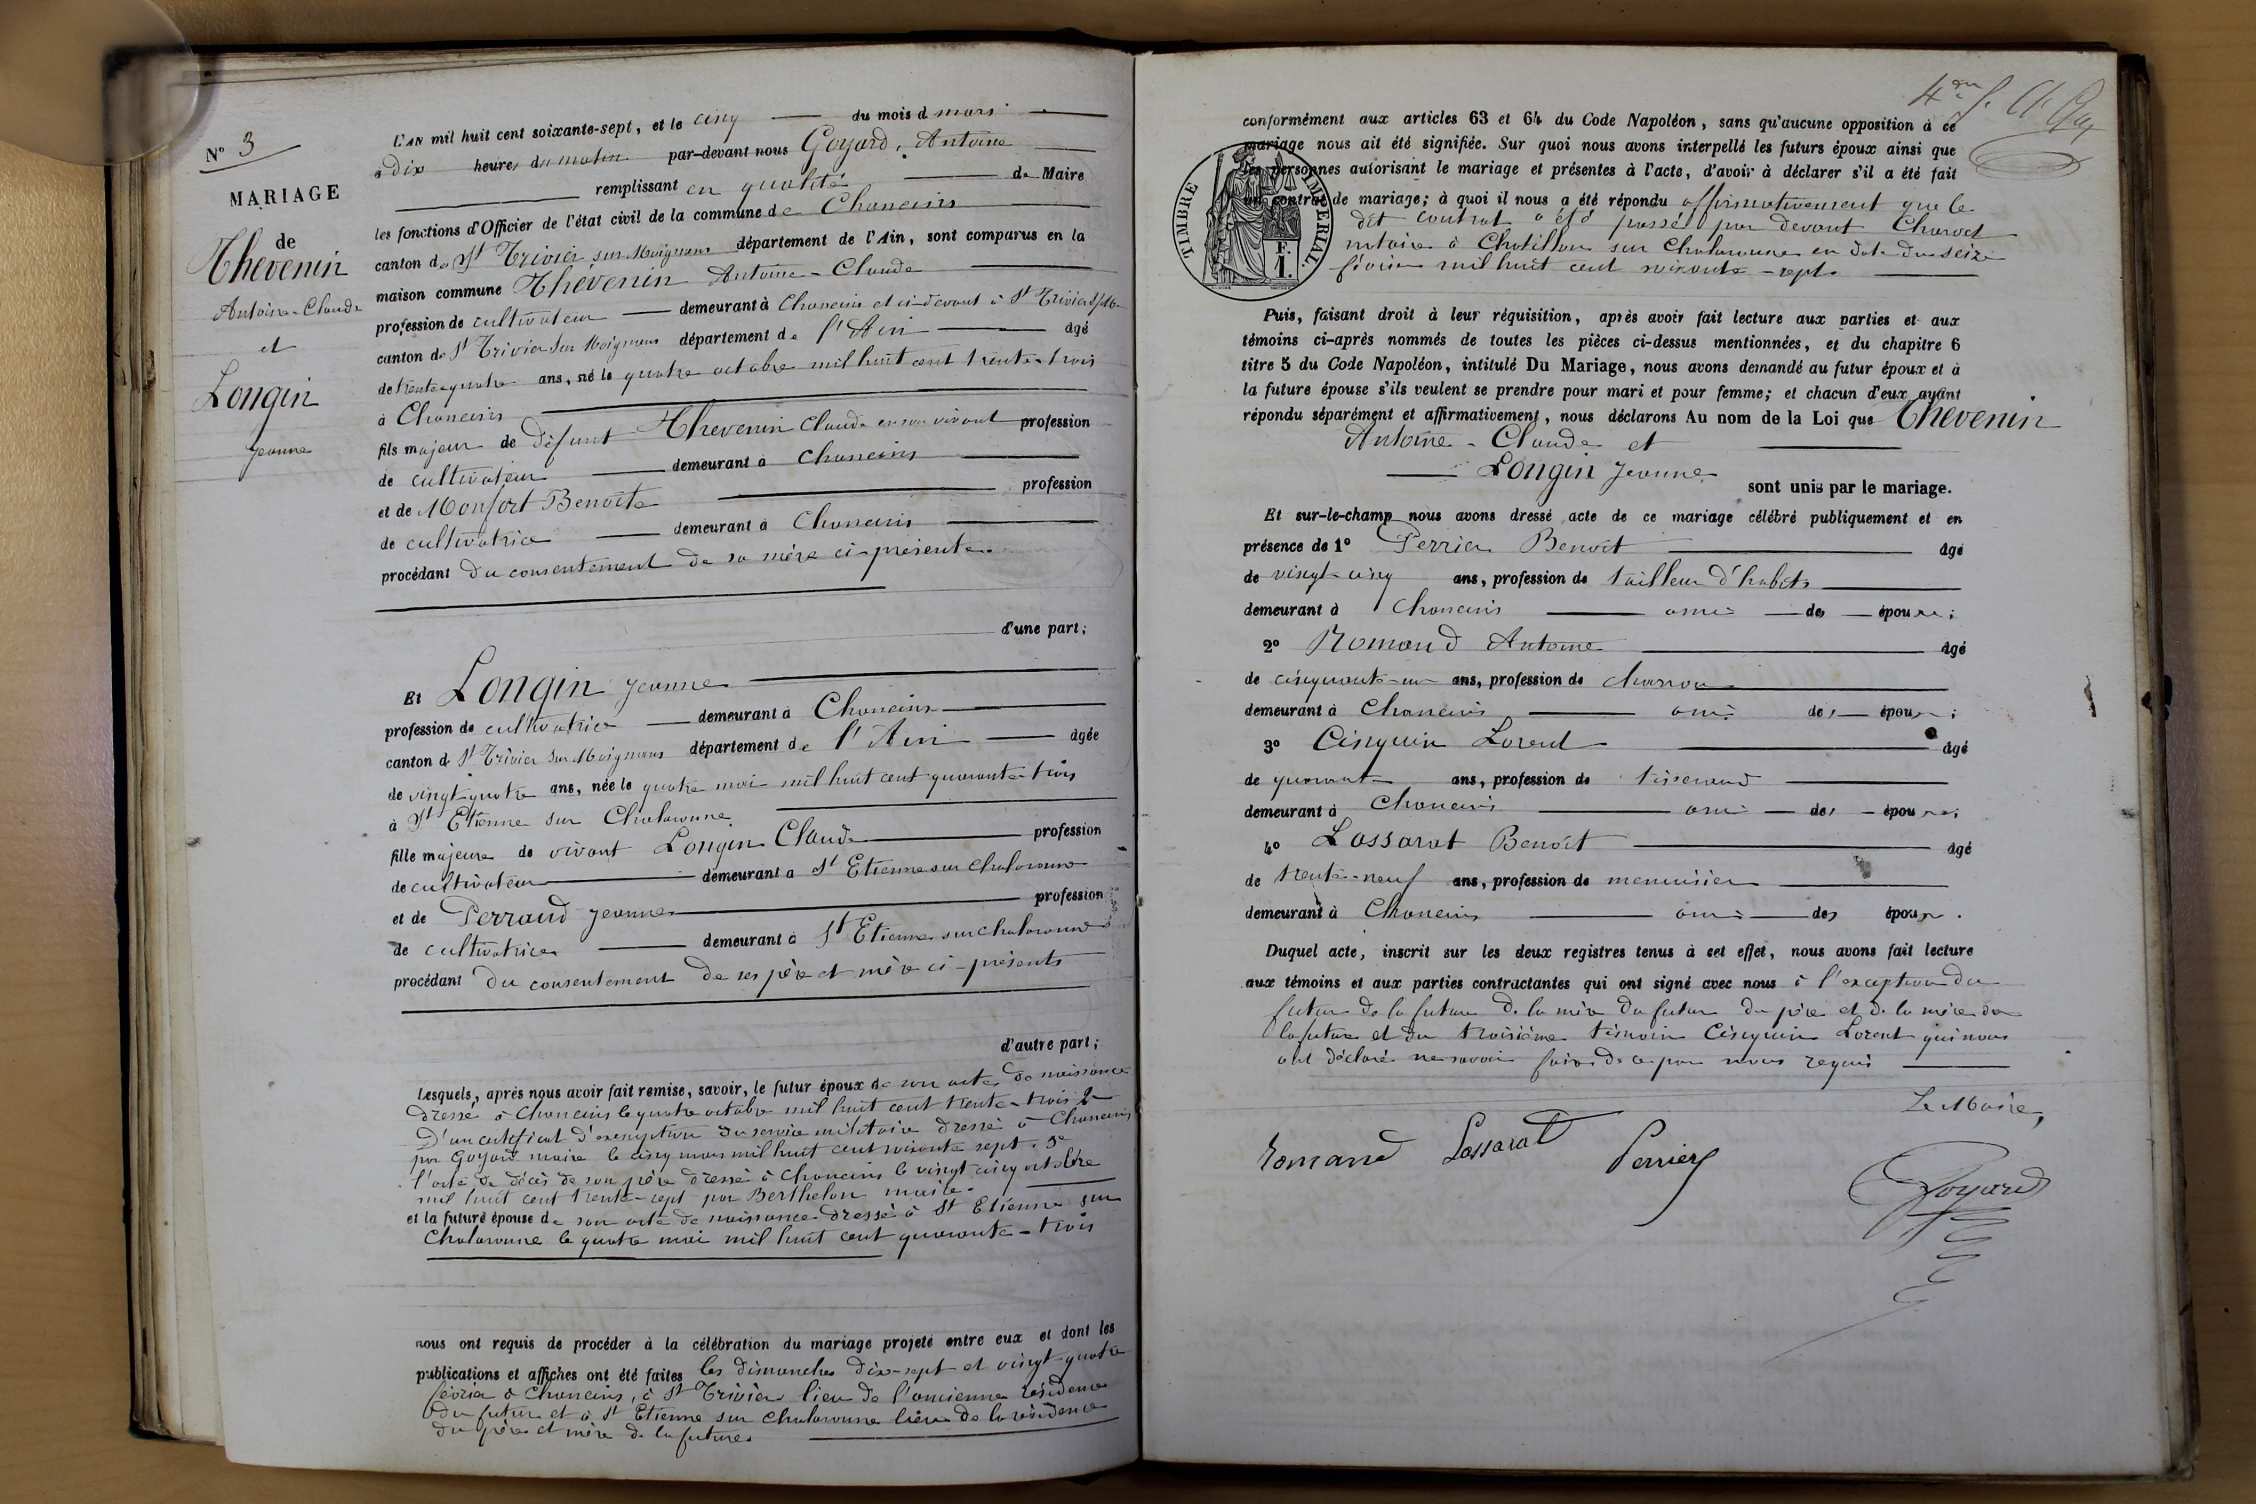 N° 3
MARIAGE
de
Thevenin
Antoine-Claude
et
Longin
Jeanne
L'AN mil huit cent soixante-sept, et le cinq du mois d mars
à dix heures du matin par-devant nous Goyard, Antoine
remplissant en qualité de Maire
les fonctions d'Officier de l'état civil de la commune de Chaneins
canton de St Trivier sur Moignans département de l'Ain, sont comparus en la
maison commune Thévenin Antoine-Claude
profession de cultivateur demeurant à Chaneins et ci-devant à St Trivier s/ Mo
canton de St Trivier sur Moignans département de l'Ain âgé
de trente-quatre ans, né le quatre octobre mil huit cent trente-trois
à Chaneins
fils majeur de défunt Thevenin Claude en son vivant profession
de cultivateur demeurant à Chaneins
et de Monfort Benoite profession
de cultivatrice demeurant à Chaneins
procédant du consentement de sa mère ci-présente.
d'une part;
Et Longin Jeanne
profession de cultivatrice demeurant à Chaneins
canton d St Trivier sur Moignans département de l'Ain âgée
de vingt-quatre ans, née le quatre mai mil huit cent quarante-trois
à St Etienne sur Chalaronne
fille majeure de vivant Longin Claude profession
de cultivateur demeurant à St Etienne sur Chalaronne
et de Perraud Jeanne profession
de cultivatrice demeurant à St Etienne sur Chalaronne
procédant du consentement de ses père et mère ci-présents
d'autre part;
Lesquels, après nous avoir fait remise, savoir, le futur époux de son acte de naissance
dressé à Chaneins le quatre octobre mil huit cent trente-trois 2°
D'un certificat d'exemption du service militaire dressé à Chaneins
par Goyard maire le cinq mars mil huit cent soixante sept. 3°
l'acte de décès de son père dressé à Chaneins le vingt-cinq octobre
mil huit cent trente-sept par Berthelon maire.
et la future épouse de son acte de naissance dressé à St Etienne sur
Chalaronne le quatre mai mil huit cent quarante-trois
nous ont requis de procéder à la célébration du mariage projeté entre eux et dont les
publications et affiches ont été faites les dimanches dix-sept et vingt-quatre
février à Chaneins, à St Trivier lieu de l'ancienne résidence
du futur et à St Etienne sur Chalaronne lieu de la résidence
du père et mère de la future.
conformément aux articles 63 et 64 du Code Napoléon, sans qu'aucune opposition à ce
mariage nous ait été signifiée. Sur quoi nous avons interpellé les futurs époux ainsi que
les personnes autorisant le mariage et présentes à l'acte, d'avoir à déclarer s'il a été fait
un contrat de mariage; à quoi il nous a été répondu affirmativement que le
dit contrat a été passé par devant Charvet
notaire à Chatillon sur Chalaronne en date du seize
février mil huit cent soixante-sept.
TIMBRE IMPERIAL.
F.
1.
Puis, faisant droit à leur réquisition, après avoir fait lecture aux parties et aux
témoins ci-après nommés de toutes les pièces ci-dessus mentionnées, et du chapitre 6
titre 5 du Code Napoléon, intitulé Du Mariage, nous avons demandé au futur époux et à
la future épouse s'ils veulent se prendre pour mari et pour femme; et chacun d'eux ayant
répondu séparément et affirmativement, nous déclarons Au nom de la Loi que Thevenin
Antoine-Claude et
Longin Jeanne
sont unis par le mariage.
Et sur-le-champ nous avons dressé acte de ce mariage célébré publiquement et en
présence de 1° Perrier Benoit âgé
de vingt-cinq ans, profession de tailleur d'habits
demeurant à Chaneins ami des époux;
2° Romand Antoine âgé
de cinquante-un ans, profession de charron
demeurant à Chaneins ami des époux;
3° Cinquin Lorent âgé
de quarante ans, profession de tisserand
demeurant à Chaneins ami des époux;
4° Lassarat Benoit âgé
de trente-neuf ans, profession de menuisier
demeurant à Chaneins ami des époux.
Duquel acte, inscrit sur les deux registres tenus à cet effet, nous avons fait lecture
aux témoins et aux parties contractantes qui ont signé avec nous à l'exception du
futur de la future de la mère du futur du père et de la mère de
la future et du troisième témoin Cinquin Lorent qui nous
ont déclaré ne savoir faire de ce par nous requis
Le Maire,
Romand Lassarat Perrier
Goyard